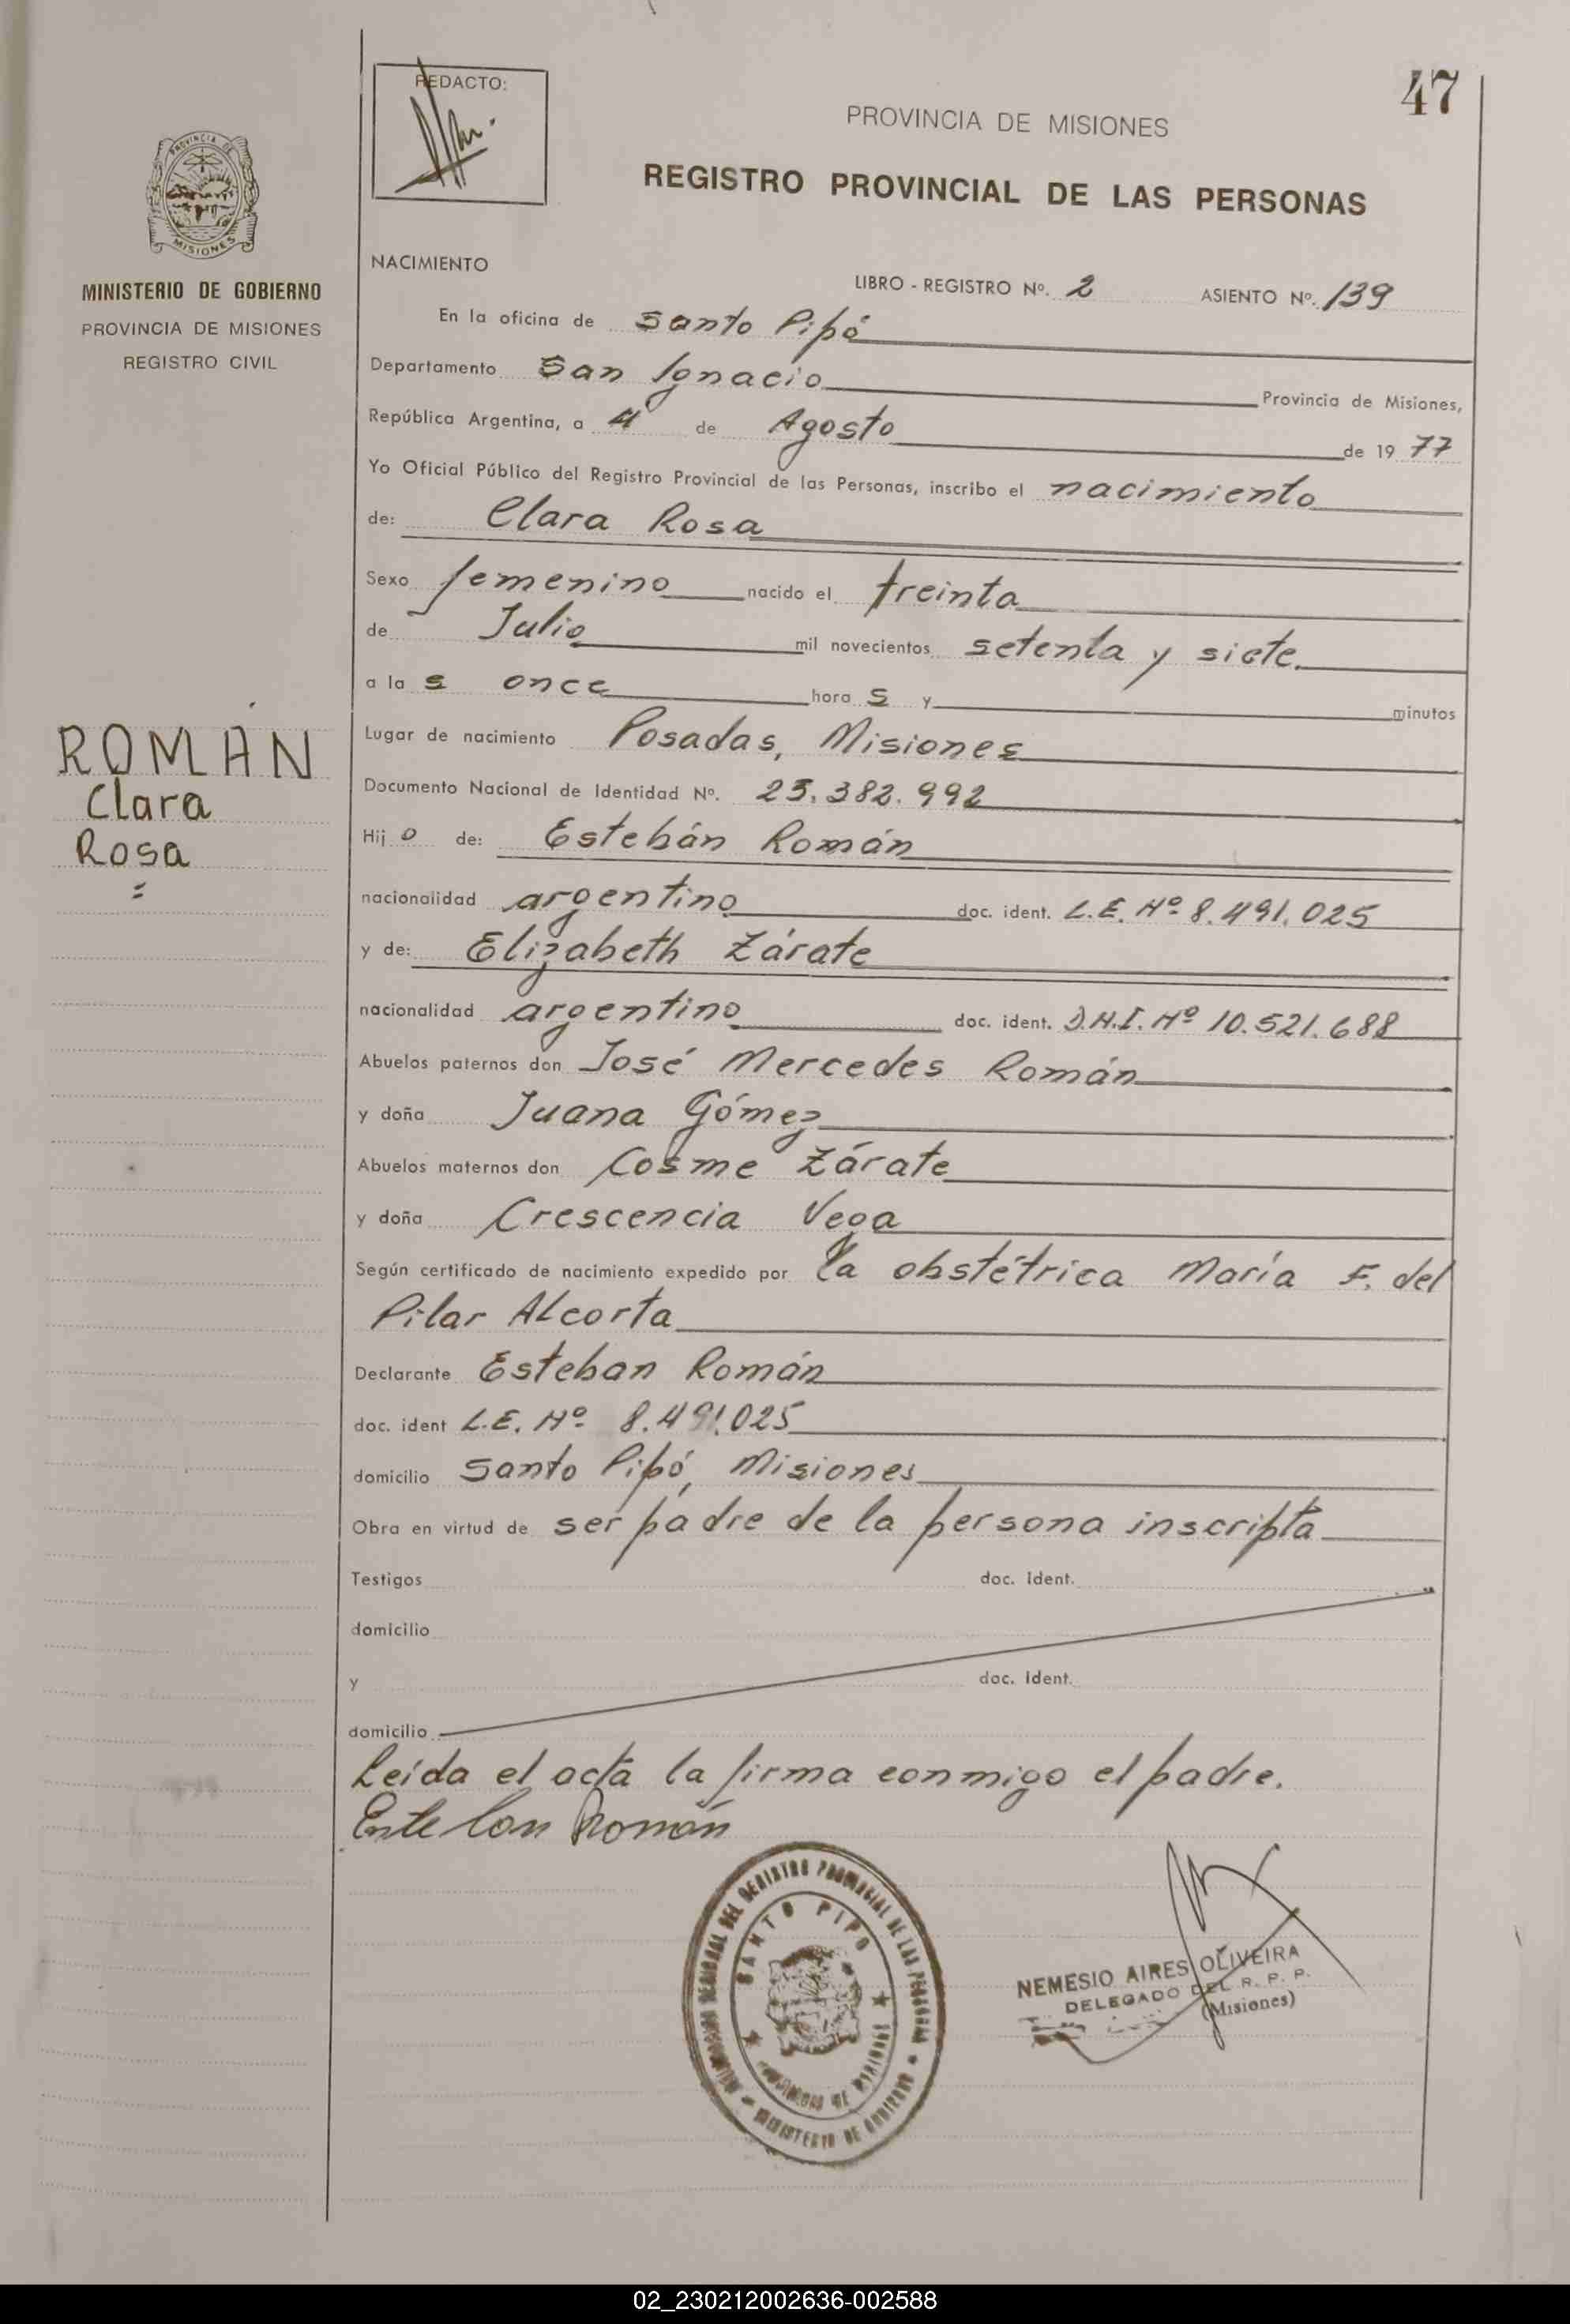 47
REDACTO:
PROVINCIA DE MISIONES
REGISTRO PROVINCIAL DE LAS PERSONAS
PROVINCIA DE
MISIONES
MINISTERIO DE GOBIERNO
PROVINCIA DE MISIONES
REGISTRO CIVIL
NACIMIENTO
LIBRO - REGISTRO Nº. 2 ASIENTO Nº. 139
En la oficina de Santo Pipó
Departamento San Ignacio Provincia de Misiones,
República Argentina, a 4 de Agosto de 1977
Yo Oficial Público del Registro Provincial de las Personas, inscribo el nacimiento
de: Clara Rosa
Sexo femenino nacido el treinta
de Julio mil novecientos setenta y siete.
a la s once hora s y minutos
ROMÁN
Clara
Rosa
=
Lugar de nacimiento Posadas, Misiones
Documento Nacional de Identidad Nº. 25.382.992
Hij o de: Estebán Román
nacionalidad argentino doc. ident. L.E. Nº 8.491.025
y de: Elizabeth Zárate
nacionalidad argentino doc. ident. D.N.I. Nº 10.521.688
Abuelos paternos don José Mercedes Román
y doña Juana Gómez
Abuelos maternos don Cosme Zárate
y doña Crescencia Vega
Según certificado de nacimiento expedido por la obstétrica María F. del
Pilar Alcorta
Declarante Esteban Román
doc. ident L.E. Nº 8.491.025
domicilio Santo Pipó, Misiones
Obra en virtud de ser padre de la persona inscripta
Testigos doc. ident.
domicilio
y doc. ident.
domicilio
Leída el acta la firma conmigo el padre.
Esteban Román
DEL REGISTRO PROVINCIAL DE LAS PERSONAS
SANTO PIPO
PROVINCIA DE MISIONES
MINISTERIO DE GOBIERNO
NEMESIO AIRES OLIVEIRA
DELEGADO DEL R. P. P.
(Misiones)
02_230212002636-002588